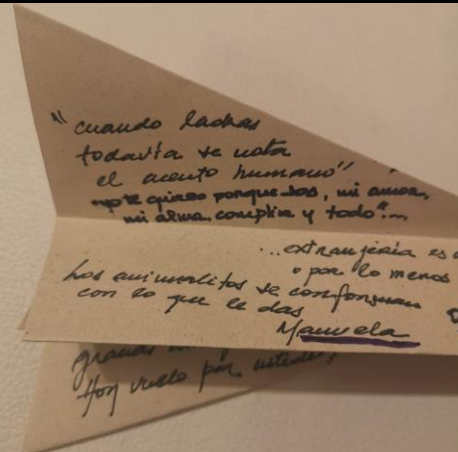 "cuando ladras
todavía se nota
el acento humano"
te quiero porque sos, mi amor,
mi alma, cómplice y todo"...
...extranjería es
o por lo menos
Los animalitos se conforman
con lo que le das
Manuela
Hoy vuelo por